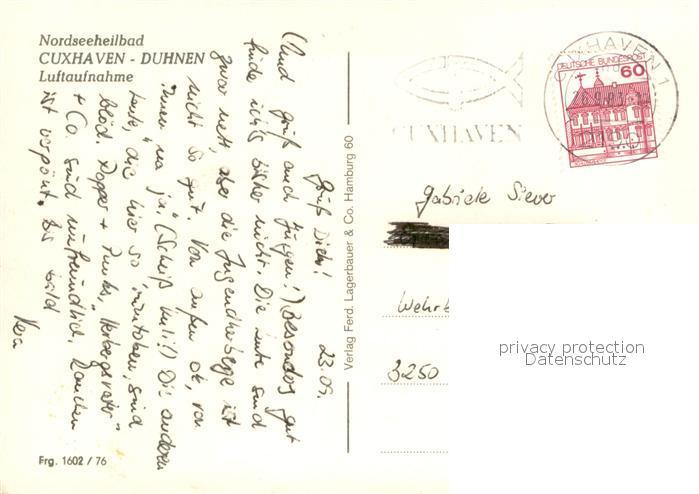 Nordseeheilbad
CUXHAVEN - DUHNEN
Luftaufnahme
23.09.
Grüß Dich!
(Und grüß auch Jürgen!) Besonders gut
finde ich's bisher nicht. Die Leute sind
zwar nett, aber die Jugendherberge ist
nicht so gut. Von außen ok, von
innen "na ja" (Scheiß Kuli!) Die anderen
Leute, die hier so rumtoben, sind
blöd. Popper + Punks, "Herbergsvater"
+ Co. sind unfreundlich. Rauchen
ist verpönt. Bis bald
Vera
Verlag Ferd. Lagerbauer & Co. Hamburg 60
Frg. 1602 / 76
CUXHAVEN
CUXHAVEN 1
DEUTSCHE BUNDESPOST
60
Gabriele Siever
Wehrb
3250
privacy protection
Datenschutz